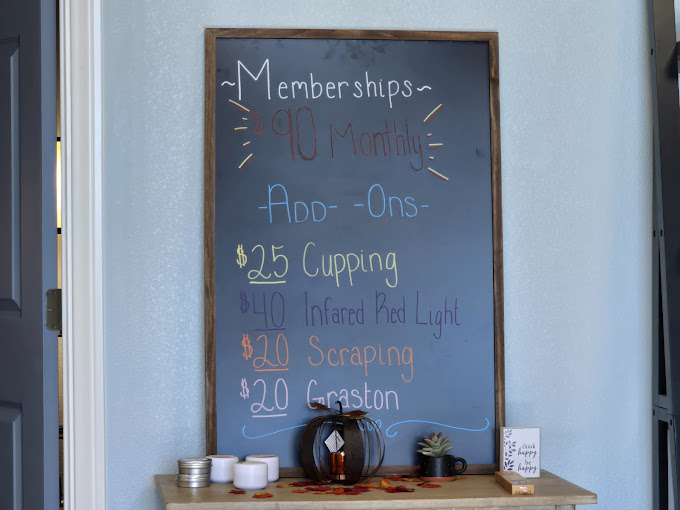 ~Memberships~
$90 Monthly
-Add- -Ons-
$25 Cupping
$40 Infared Red Light
$20 Scraping
$20 Graston
think
happy
be
happy